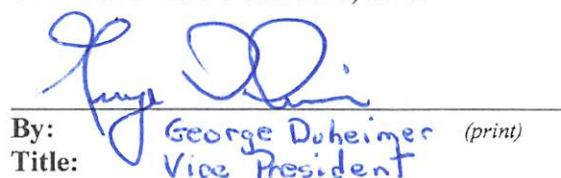 By: George Duheimer (print)
Title: Vice President